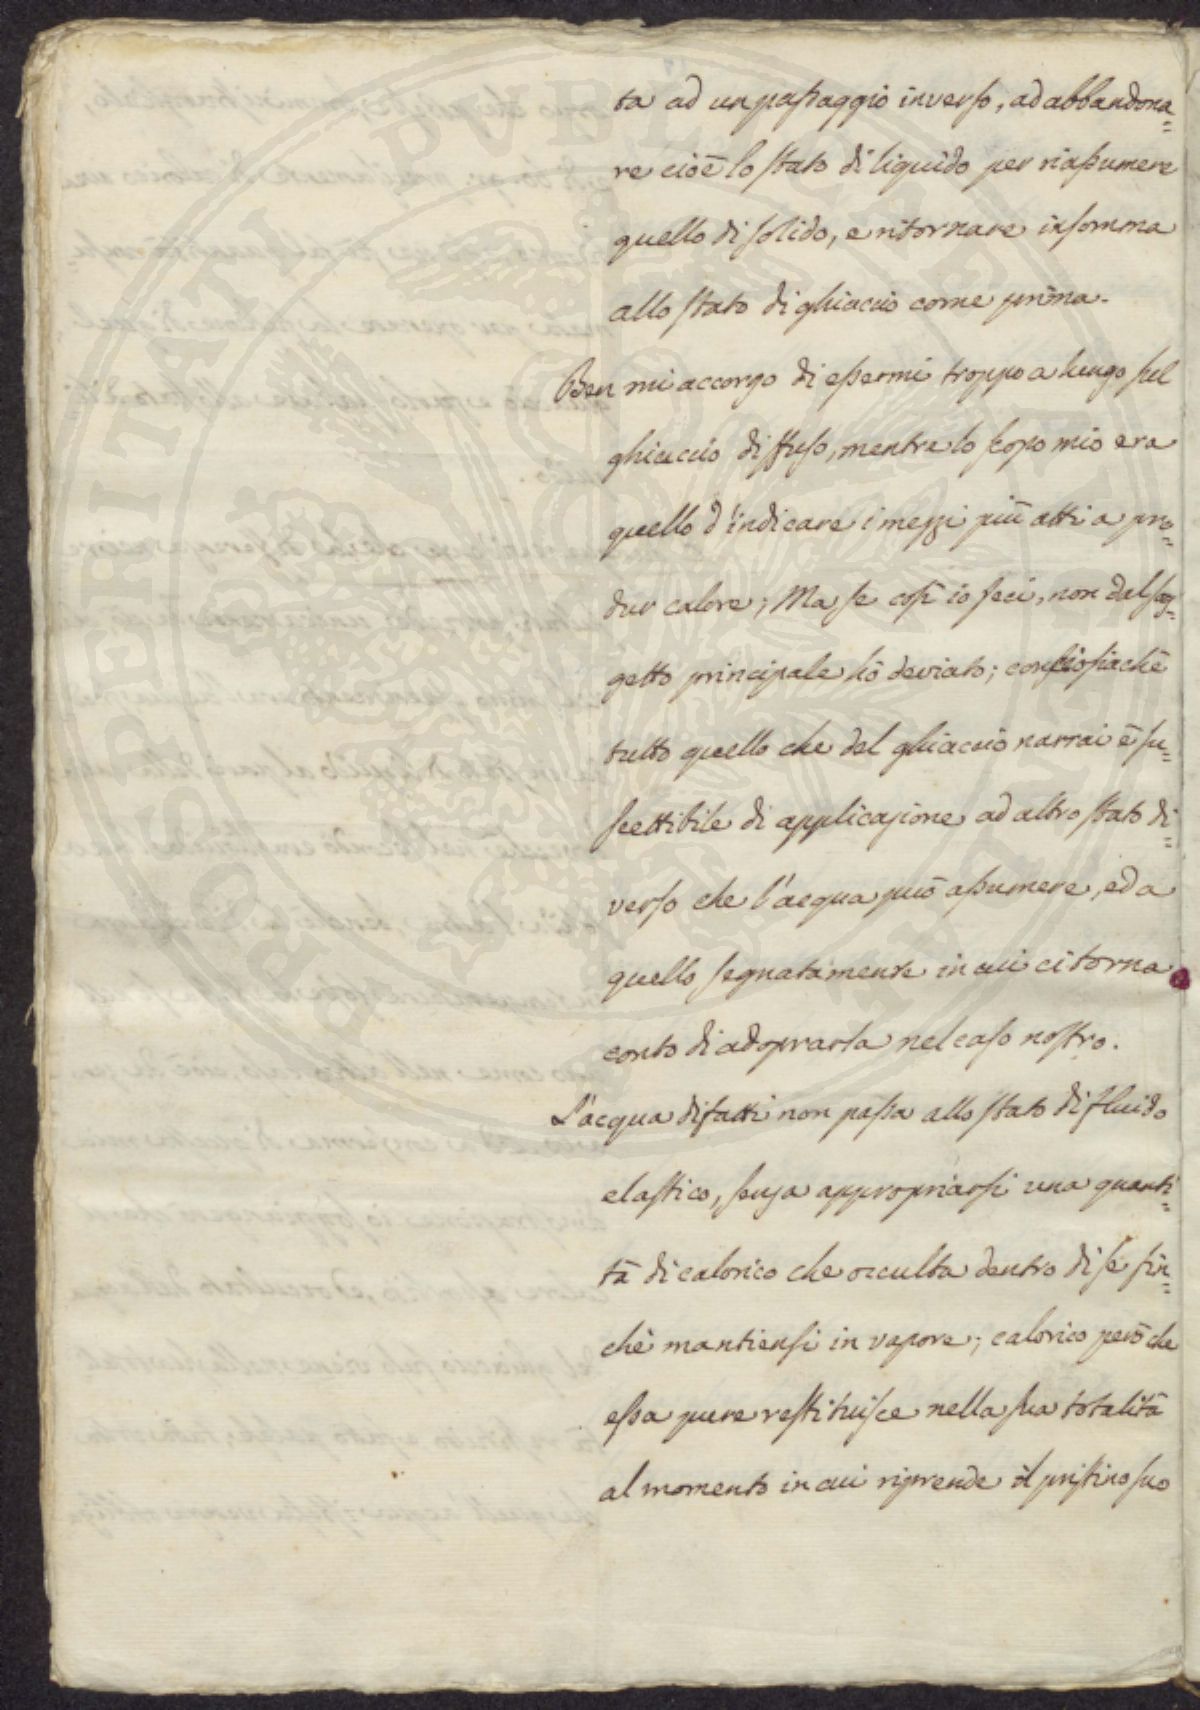 ta ad un passaggio inverso, ad abbandona=
re cioè lo stato di liquido per riassumere
quello di solido, e ritornare insomma
allo stato di ghiaccio come prima.
Ben mi accorgo di essermi troppo a lungo sul
ghiaccio diffuso, mentre lo scopo mio era
quello d'indicare i mezzi più atti a pro=
dur calore; Ma se così io feci, non dal sog=
getto principale hò deviato; conciosiachè
tutto quello che del ghiaccio narrai è su=
scettibile di applicazione ad altro stato di=
verso che l'acqua può assumere, ed a
quello segnatamente in cui ci torna
conto di adoprarla nel caso nostro.
L'acqua difatti non passa allo stato di fluido
elastico, senza appropriarsi una quanti=
tà di calorico che occulta dentro di se fin=
chè mantiensi in vapore; calorico però che
essa pure restituisce nella sua totalità
al momento in cui riprende il pristino suo
PROSPERITATI PUBLICAE AUGENDAE